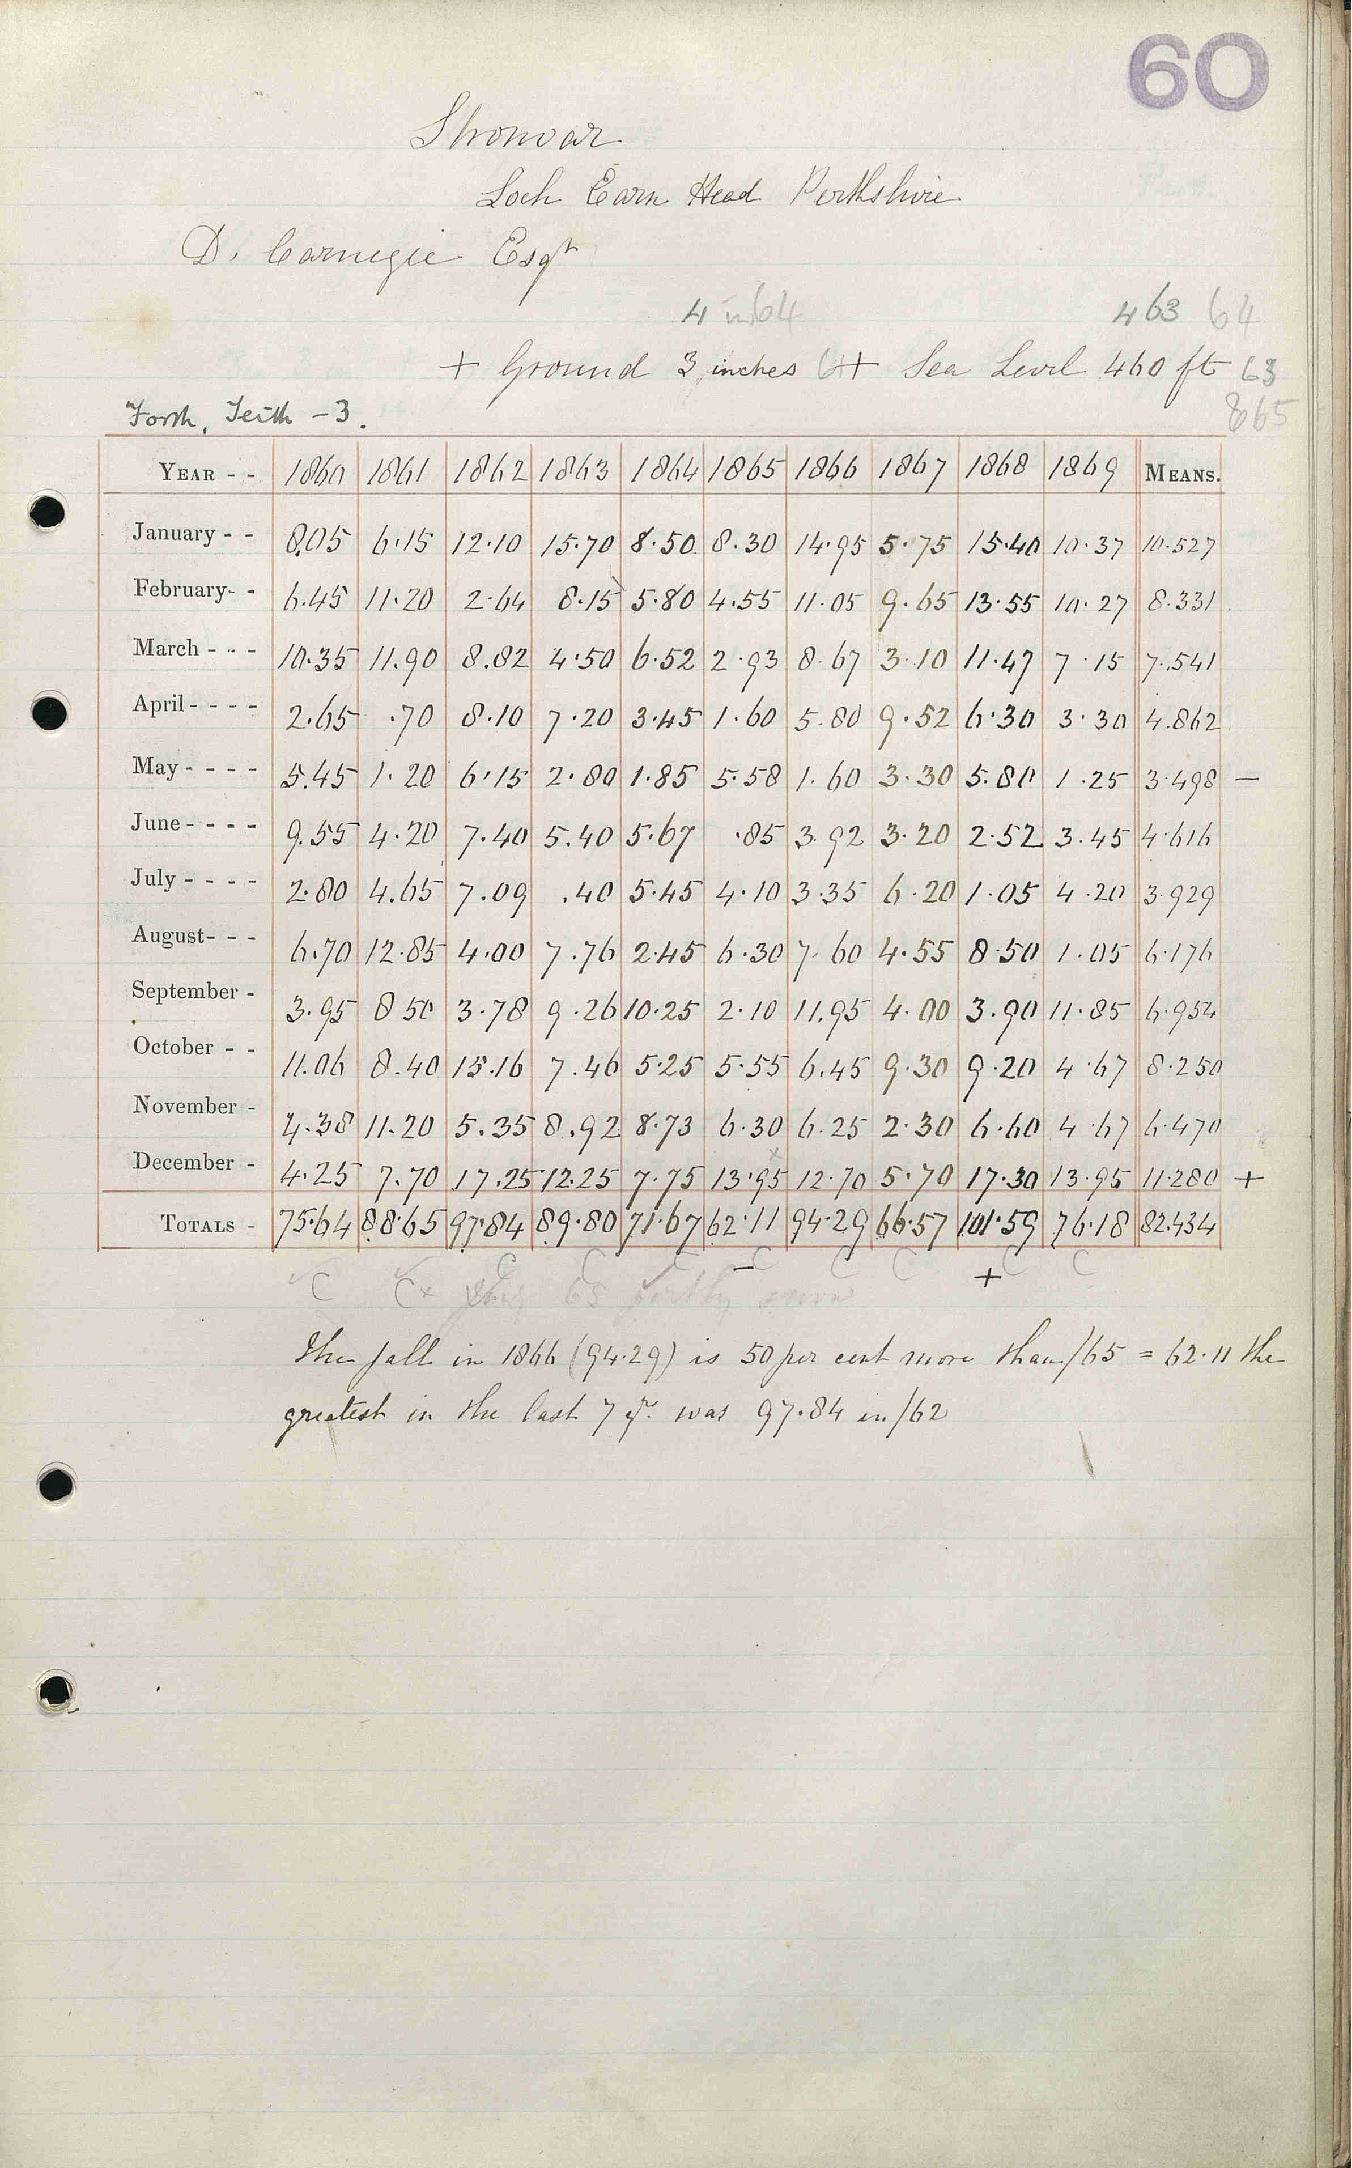 60
Stronvar
Loch Earn Head Perthshire
D. Carnegie Esqr
4 in 64 463 64
+ Ground 3 inches + Sea Level 460 ft 63
865
Forth, Teith - 3.
YEAR - - 1860 1861 1862 1863 1864 1865 1866 1867 1868 1869 MEANS.
January - - 8.05 6.15 12.10 15.70 8.50 8.30 14.95 5.75 15.40 10.37 10.527
February - - 6.45 11.20 2.64 8.15 5.80 4.55 11.05 9.65 13.55 10.27 8.331
March - - - 10.35 11.90 8.82 4.50 6.52 2.93 8.67 3.10 11.47 7.15 7.541
April - - - - 2.65 .70 8.10 7.20 3.45 1.60 5.80 9.52 6.30 3.30 4.862
May - - - - 5.45 1.20 6.15 2.80 1.85 5.58 1.60 3.30 5.80 1.25 3.498 -
June - - - - 9.55 4.20 7.40 5.40 5.67 .85 3.92 3.20 2.52 3.45 4.616
July - - - - 2.80 4.65 7.09 .40 5.45 4.10 3.35 6.20 1.05 4.20 3.929
August - - - 6.70 12.85 4.00 7.76 2.45 6.30 7.60 4.55 8.50 1.05 6.176
September - 3.95 8 50 3.78 9.26 10.25 2.10 11.95 4.00 3.90 11.85 6.954
October - - 11.06 8.40 15.16 7.46 5.25 5.55 6.45 9.30 9.20 4.67 8.250
November - 4.38 11.20 5.35 8.92 8.73 6.30 6.25 2.30 6.60 4.67 6.470
December - 4.25 7.70 17.25 12.25 7.75 13.95 12.70 5.70 17.30 13.95 11.280 +
TOTALS - 75.64 88.65 97.84 89.80 71.67 62.11 94.29 66.57 101.59 76.18 82.434
C C C C C - C C C + C C
65 partly snow
The fall in 1866 (94.29) is 50 per cent more than /65 = 62.11 the
greatest in the last 7 yr. was 97.84 in /62